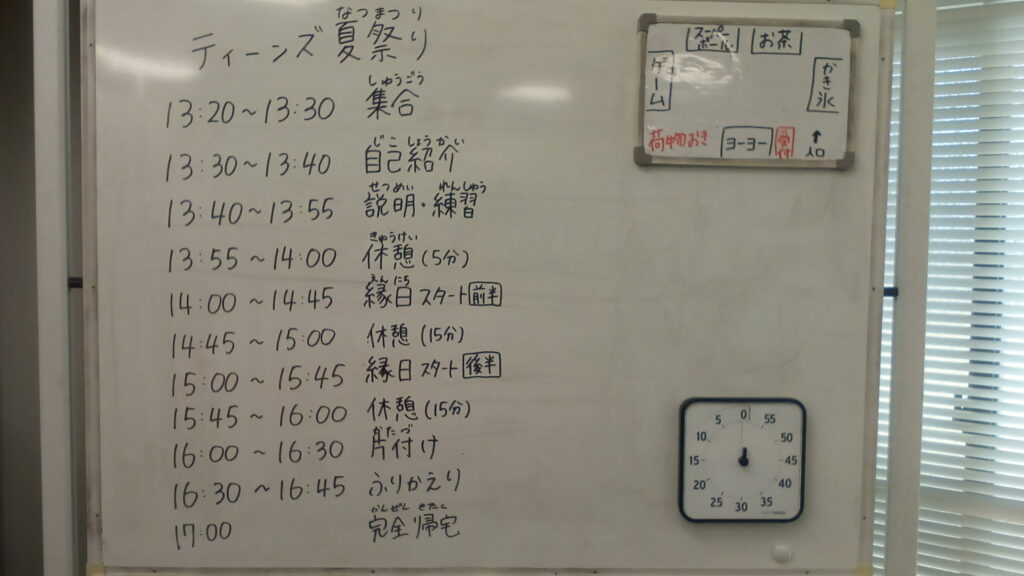 なつまつり
ティーンズ夏祭り
しゅうごう
13:20~13:30 集合
じこしょうかい
13:30~13:40 自己紹介
せつめい れんしゅう
13:40~13:55 説明・練習
きゅうけい
13:55~14:00 休憩(5分)
えんにち
14:00~14:45 縁日スタート前半
14:45~15:00 休憩(15分)
15:00~15:45 縁日スタート後半
15:45~16:00 休憩(15分)
かたづ
16:00~16:30 片付け
16:30~16:45 ふりかえり
かんぜん きたく
17:00 完全帰宅
スーパーボール
お茶
ゲーム
かき氷
荷物おき
ヨーヨー
受付
↑
入口
0
55
50
45
40
35
30
25
20
15
10
5